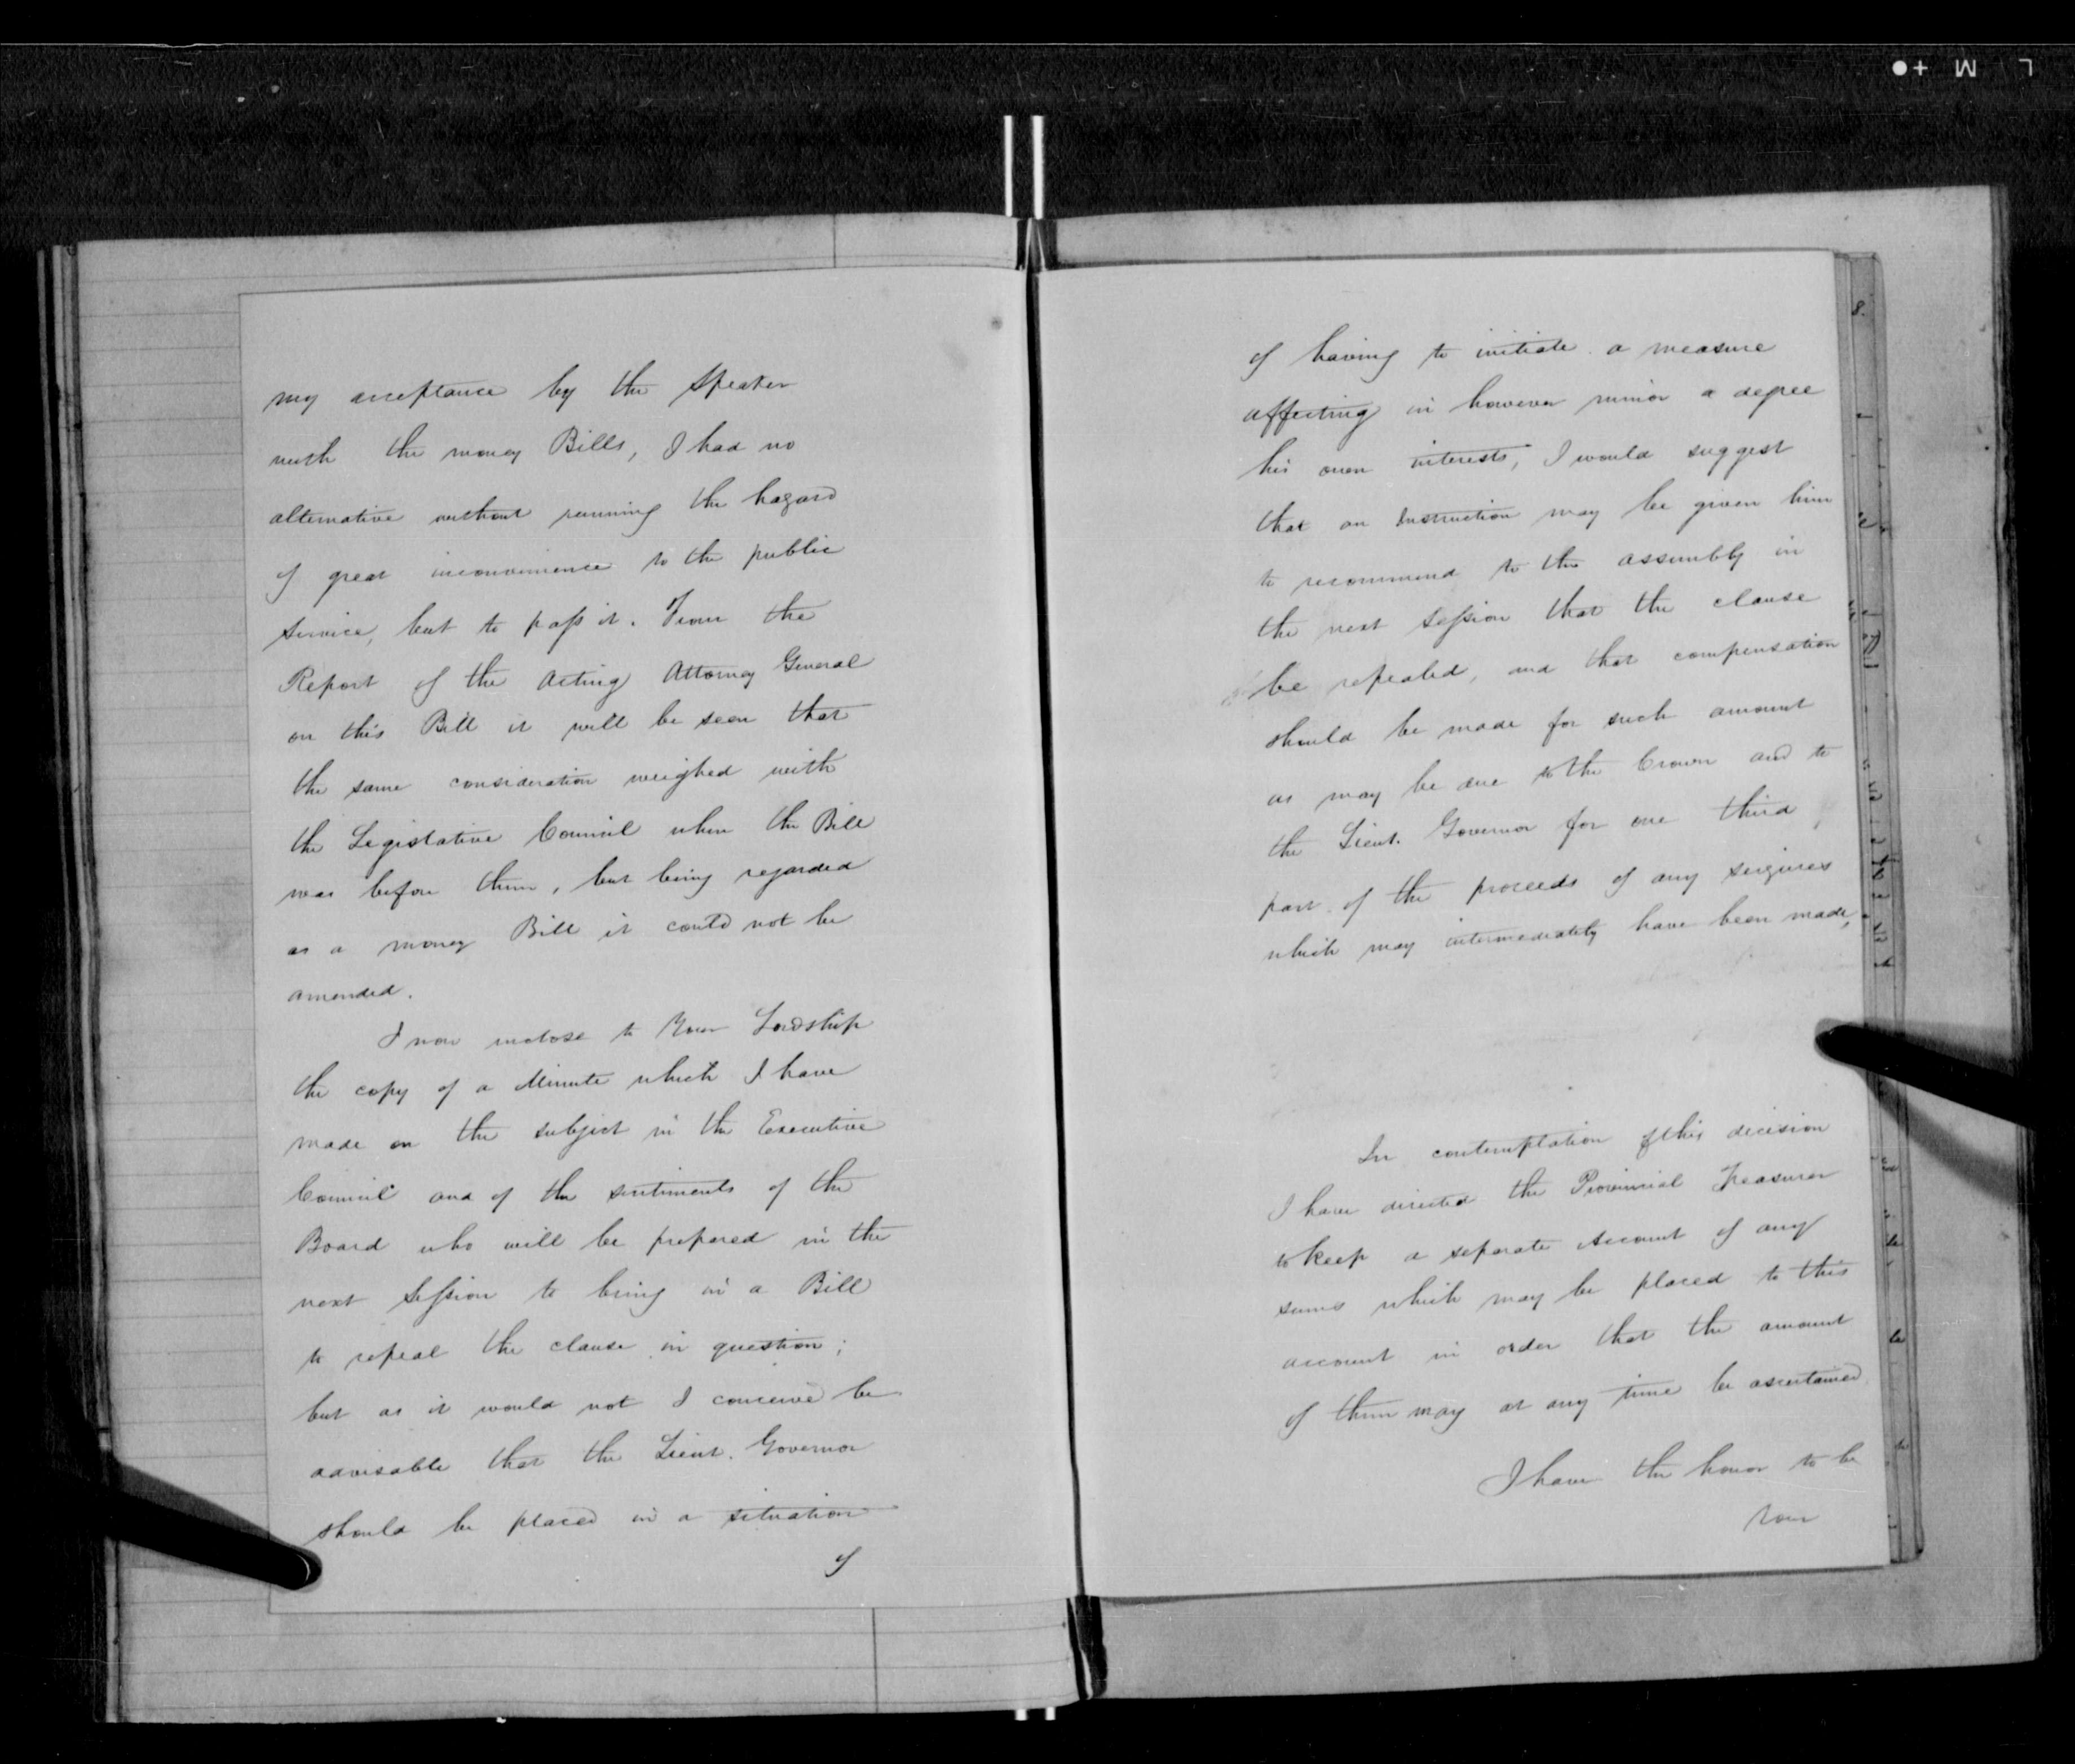 my acceptance by the Speaker
with the money Bills, I had no
alternative without running the hazard
of great inconvenience to the public
Service, but to pass it. From the
Report of the Acting Attorney General
on this Bill it will be seen that
the same consideration weighed with
the Legislative Council when the Bill
was before them, but being regarded
as a money Bill it could not be
amended.
I now inclose to Your Lordship
the copy of a Minute which I have
made on the subject in the Executive
Council and of the sentiments of the
Board who will be prepared in the
next Session to bring in a Bill
to repeal the clause in question;
but as it would not I conceive be
advisable that the Lieut. Governor
should be placed in a situation
of
of having to initiate a measure
affecting in however minor a degree
his own interests, I would suggest
that an Instruction may be given him
to recommend to the assembly in
the next Session that the clause
be repealed, and that compensation
should be made for such amount
as may be due to the Crown and to
the Lieut. Governor for one third
part of the proceeds of any seizures
which may intermediately have been made,
In contemplation of this decision
I have directed the Provincial Treasurer
to keep a separate Account of any
sums which may be placed to this
account in order that the amount
of them may at any time be ascertained
I have the honor to be
Your
L M +